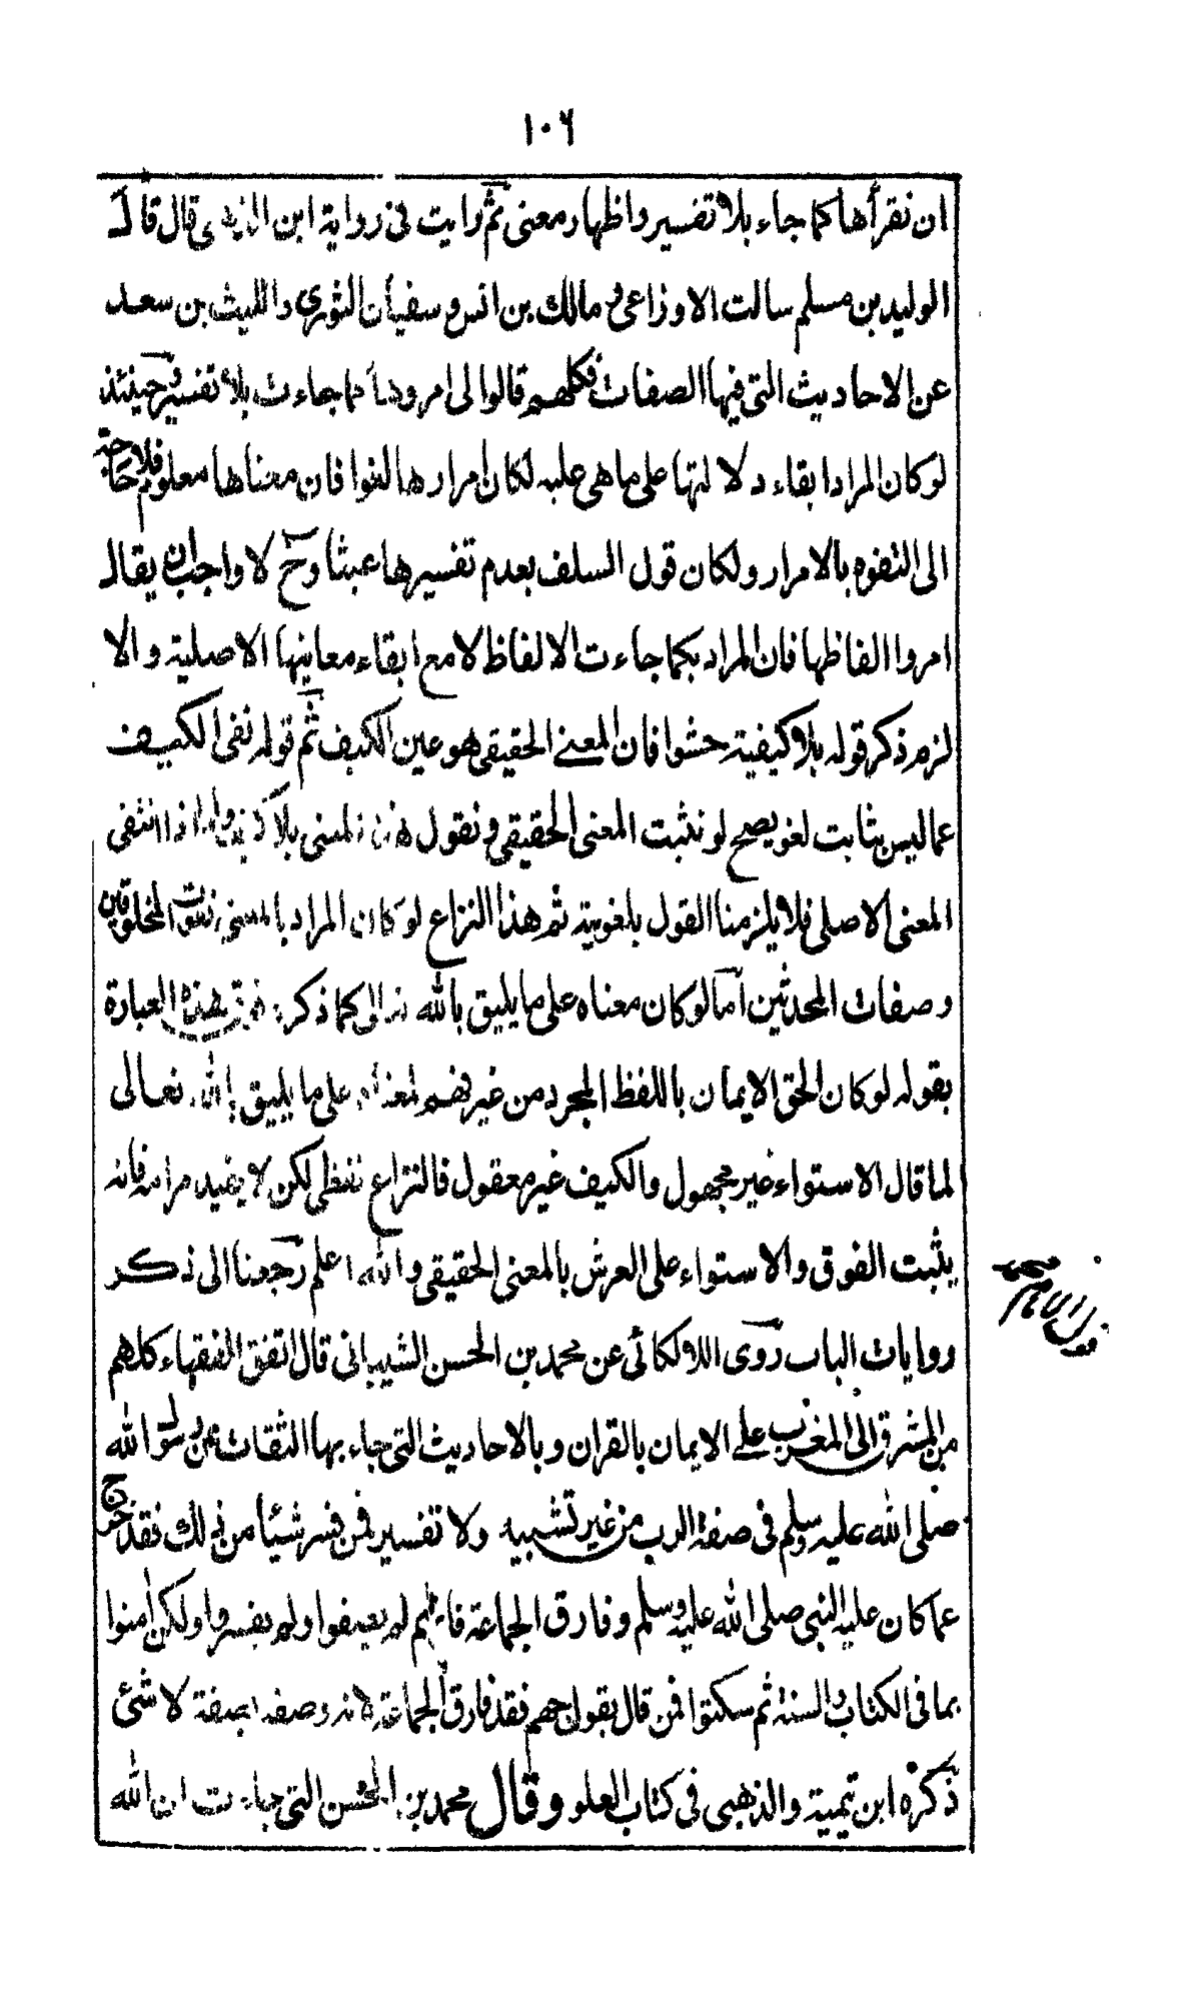 ١٠٦
ان نقرأها كما جاء بلا تفسير واظهار معنى ثم رايت فى رواية ابن قال قال
الوليد بن مسلم سالت الاوزاعى و مالك بن انس و سفيان الثورى والليث بن سعد
عن الاحاديث التى فيها الصفات فكلهم قالوا لى امروها كما جاءت بلا تفسير وحينئذ
لو كان المراد ابقاء دلالتها على ما هى عليه لكان امرارها لغوا فان معناها معلوم فلا حاجة
الى التفوه بالامرار ولكان قول السلف بعدم تفسيرها عبثا وح لا واجب ان يقال
امروا الفاظها فان المراد بكما جاءت الالفاظ لا مع ابقاء معانيها الاصلية والا
لزم ذكر قوله بلا كيفية حشوا فان المعنى الحقيقى هو عين الكيف ثم قوله نفى الكيف
عما ليس بثابت لغو يصح لو نثبت المعنى الحقيقى ونقول المعنى بلا واما اذا انتفى
المعنى الاصلى فلا يلزمنا القول بلغويته ثم هذا النزاع لو كان المراد بالمعنى نعوت المخلوقين
وصفات المحدثين اما لو كان معناه على ما يليق بالله تعالى كما ذكر هذه العبارة
بقوله لو كان الحق الايمان باللفظ المجرد من غير فهم لمعناه على ما يليق بالله تعالى
لما قال الاستواء غير مجهول والكيف غير معقول فالنزاع لفظى لكن لا يفيد مرامه فانه
يثبت الفوق والاستواء على العرش بالمعنى الحقيقى والله اعلم رجعنا الى ذكر
روايات الباب روى اللالكائى عن محمد بن الحسن الشيبانى قال اتفق الفقهاء كلهم
من المشرق الى المغرب على الايمان بالقران وبالاحاديث التى جاء بها الثقات عن رسول الله
صلى الله عليه وسلم فى صفة الرب من غير تشبيه ولا تفسير فمن فسر شيئا من ذلك فقد خرج
عما كان عليه النبى صلى الله عليه وسلم وفارق الجماعة فانهم لم يصفوا ولم يفسروا ولكن امنوا
بما فى الكتاب والسنة ثم سكتوا فمن قال بقول جهم فقد فارق الجماعة لانه وصفه بصفة لا شئ
ذكره ابن تيمية والذهبى فى كتاب العلو وقال محمد بن الحسن التى جاءت ان الله
قول الامام محمد